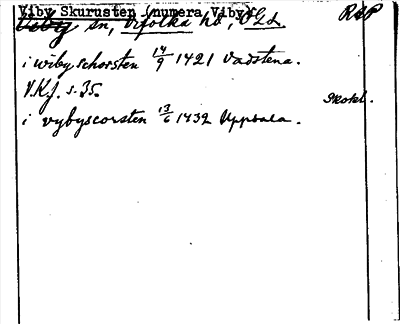 Viby Skurusten (numera Viby)
Viby sn, Vifolka hd, Ögl. RAP
i wibyschorsten 14/9 1421 Vadstena.
V.K.J. s. 35.
Skokl.
i vybyscorsten 13/6 1432 Uppsala.